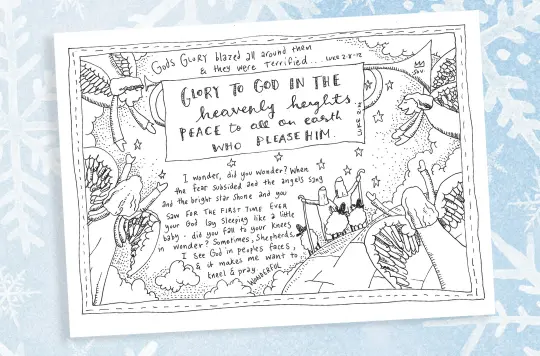 God's GLORY blazed all around them
& they were terrified... LUKE 2:8-12
GLORY TO GOD IN THE
heavenly heights
PEACE to all on earth
WHO PLEASE HIM.
LUKE 2:14
I wonder, did you wonder? When
the fear subsided and the angels sang
and the bright star shone and you
SAW FOR THE FIRST TIME EVER
your God lay sleeping like a little
baby - did you fall to your knees
in wonder? Sometimes, Shepherds,
I see God in peoples faces,
& it makes me want to
kneel & pray.
WONDERFUL